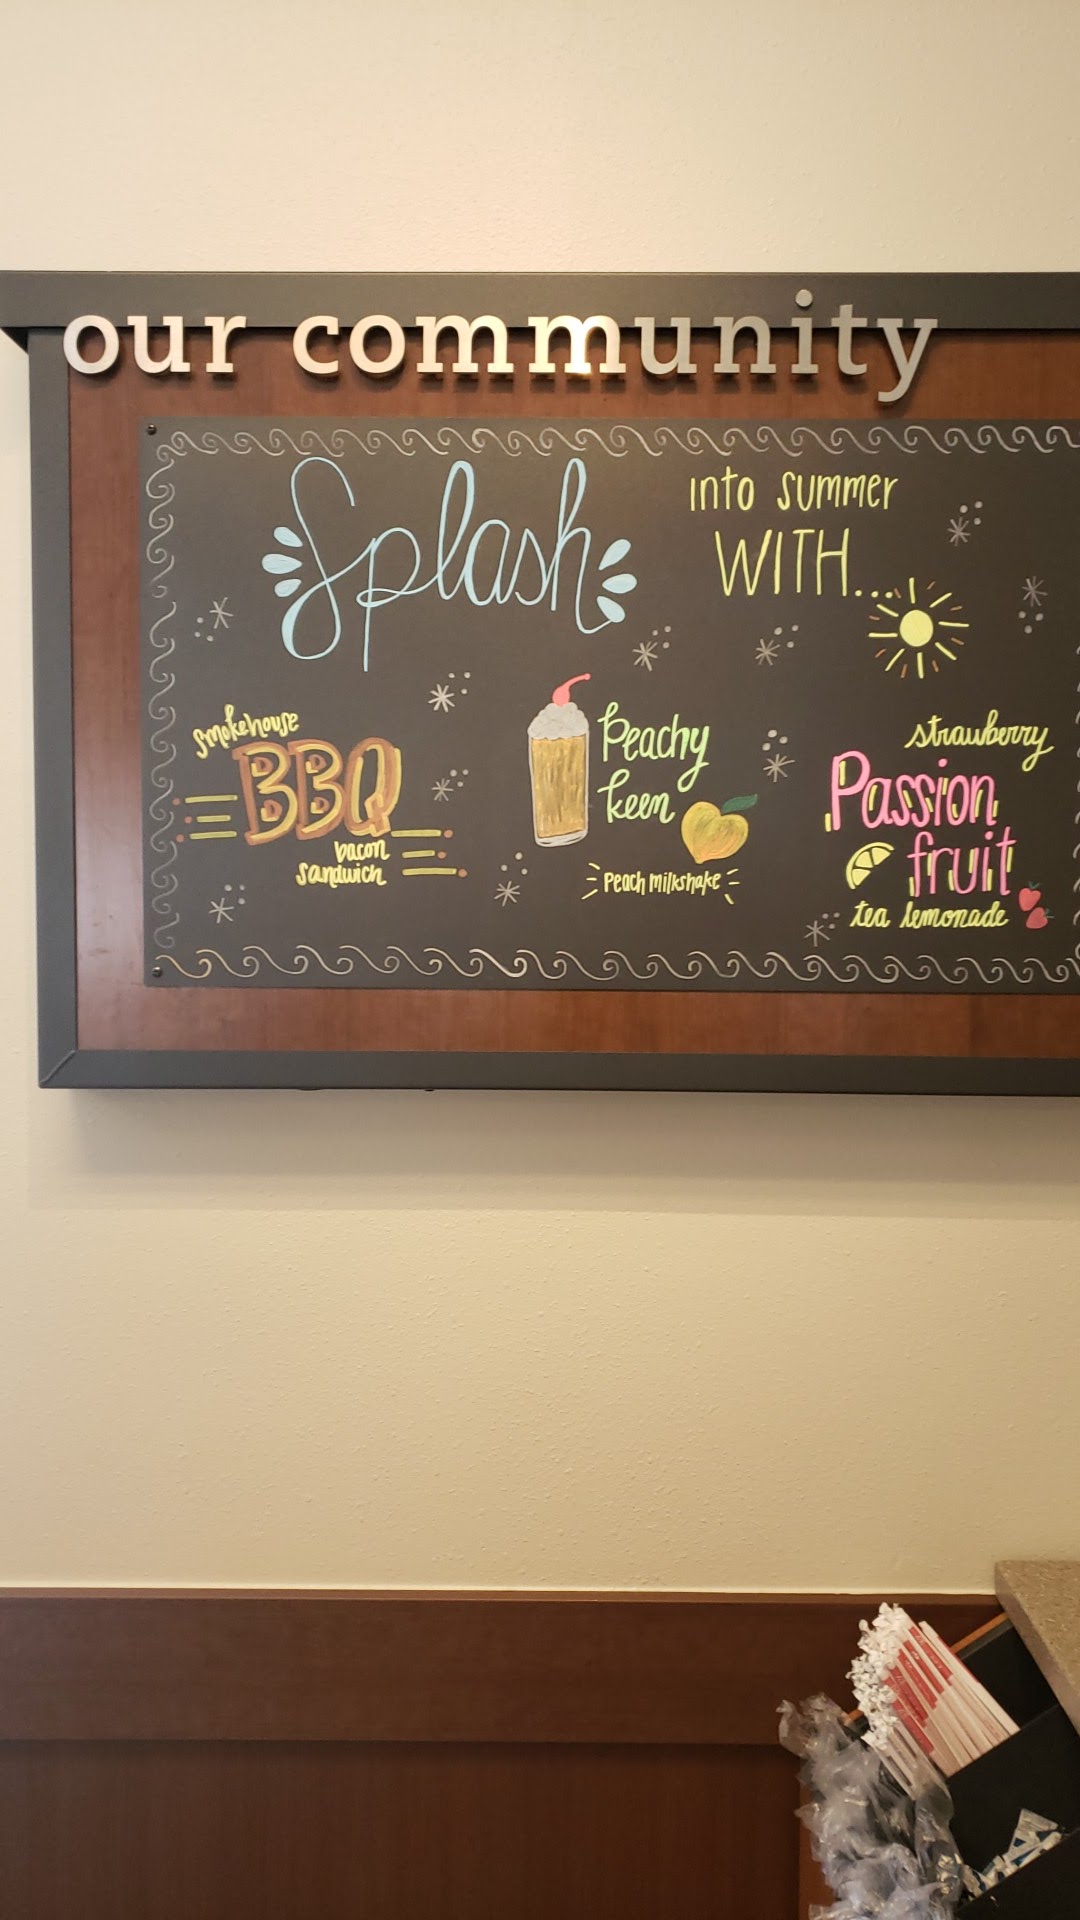 our community
Splash
into summer
WITH...
smokehouse
BBQ
bacon
sandwich
Peachy
keen
Peach milkshake
strawberry
Passion
fruit
tea lemonade